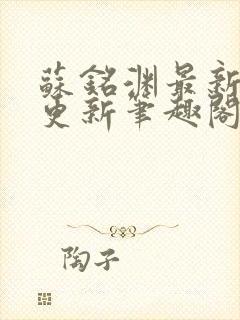 蘇銘渊最新
更新筆趣閣
陶子